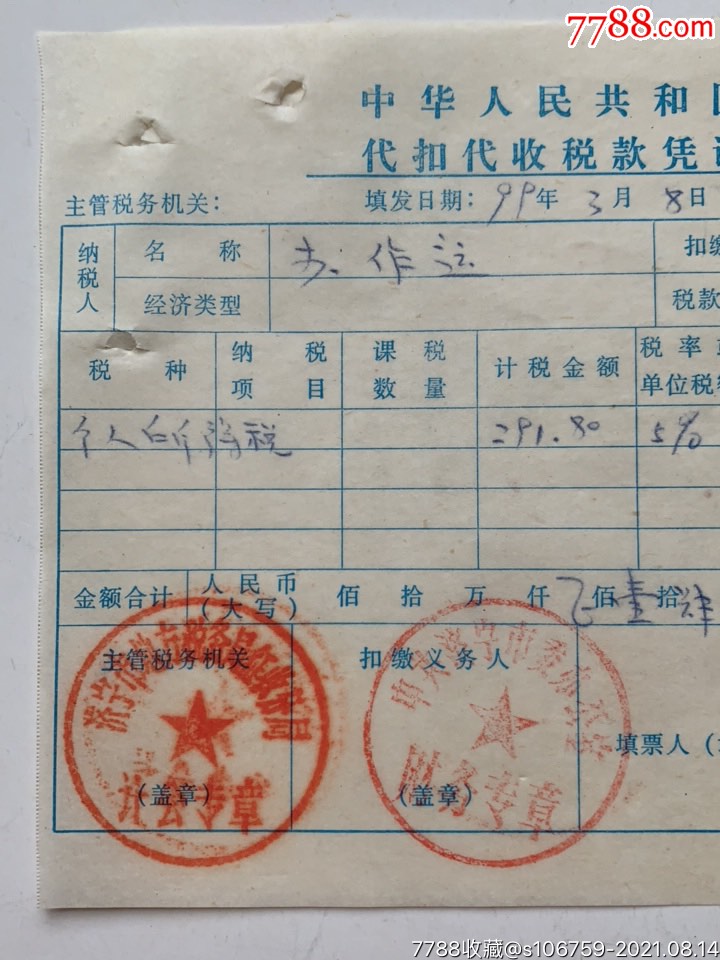 7788.com
中华人民共和
代扣代收税款凭
主管税务机关： 填发日期：99年3月8日
纳税人 名称 扣缴
经济类型 税款
税种 纳税项目 课税数量 计税金额 税率 单位税
个人所得税 291.80 5%
金额合计 人民币（大写） 佰 拾 万 仟 佰 壹 拾 肆
主管税务机关 扣缴义务人
填票人（
（盖章） （盖章）
中共济宁市委办公室
财务专用章
7788收藏@s106759-2021.08.14